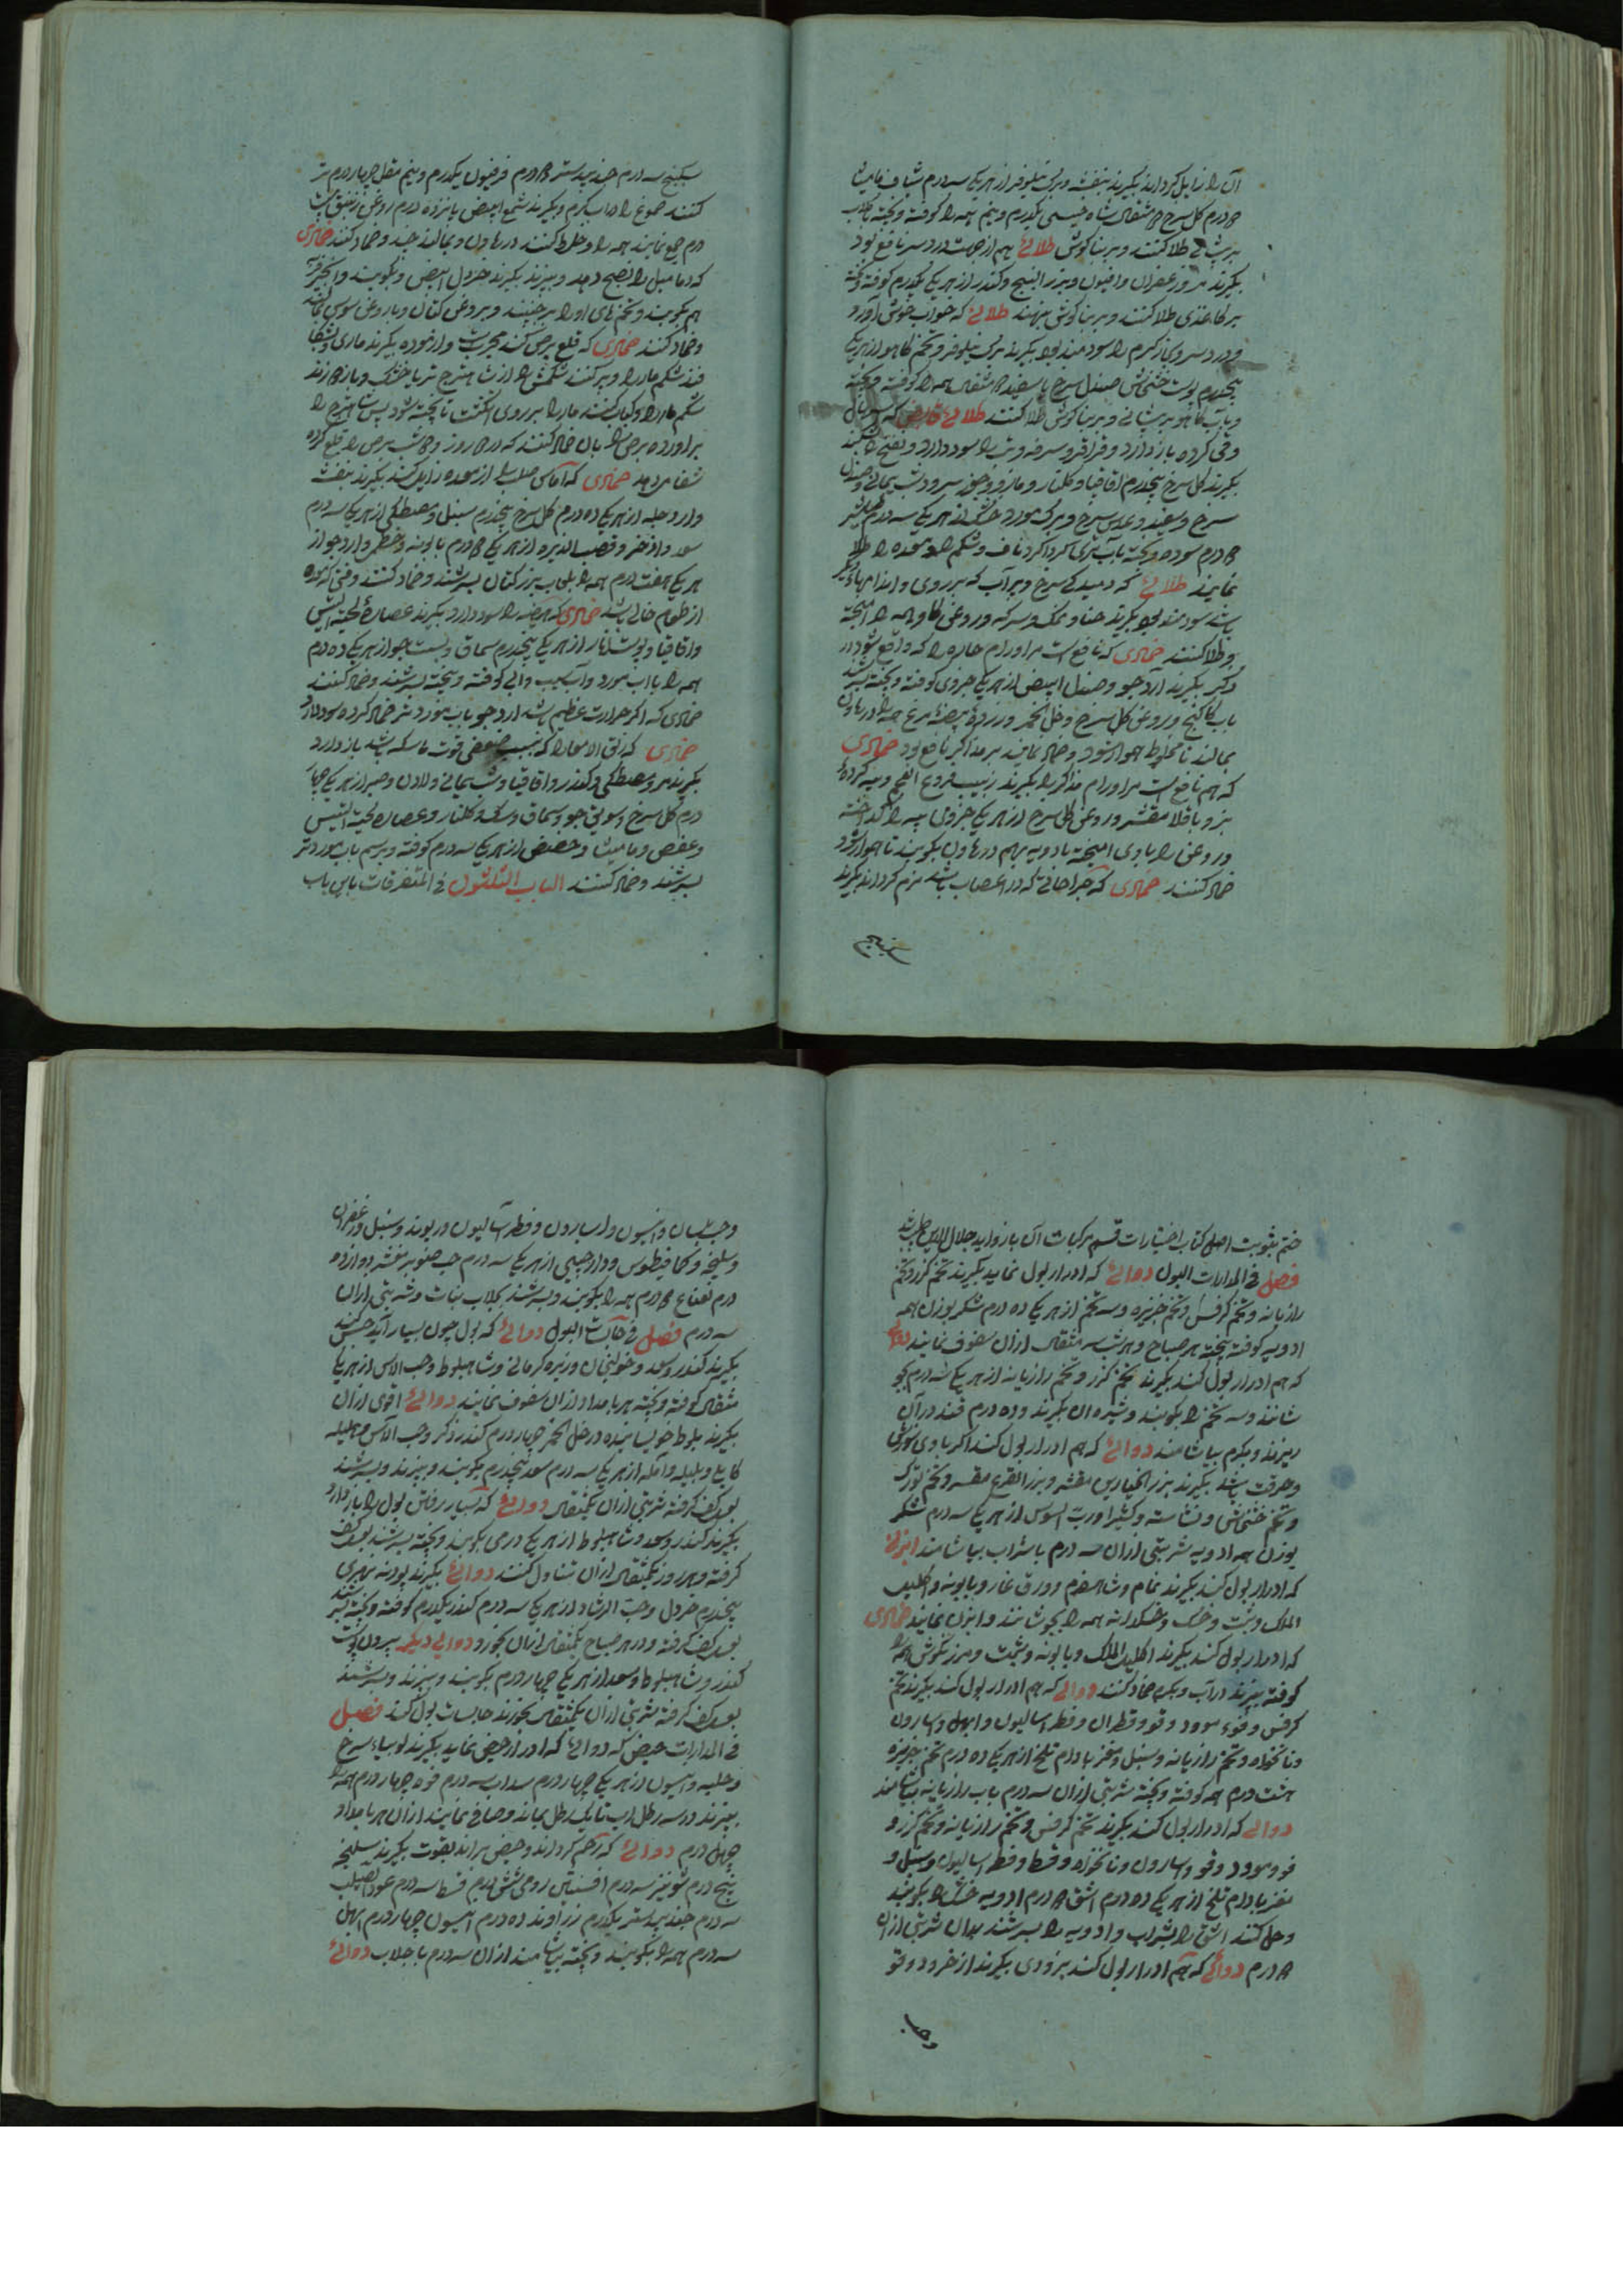 آن را زایل کرداند بکیرند بنفشه و برک نیلوفر از هر یکی سه درم شیاف مامیثا
درم کل سرخ مثقال شاه یکدرم و نیم همه را کوفته و بیخته بکلاب
بر پیشانی طلا کنند و بر بناکوش طلائی هم از جهت درد سر نافع بود
بکیرند مر و زعفران و افیون و بزر البنج و کندر از هر یکی یکدرم کوفته و بیخته
بر کاغذی طلا کنند و بر بناکوش بنهند طلائی که خواب خوش آورد
و درد سر کرم را سودمند بود بکیرند برک نیلوفر و تخم کاهو از هر یکی
پنجدرم پوست خشخاش صندل سرخ یا سفید مثقال همه را کوفته و بیخته
و بآب کاهو بر پیشانی و بر بناکوش طلا کنند طلائی قابض که
و قی کرده باز دارد و قراقر و سرفه و تب را سود دارد و نضج
بکیرند کل سرخ پنجدرم اقاقیا و کلنار و مازو و جوز سرو و شب یمانی و صندل
سرخ و سفید و عدس سرخ و برک مورد خشک از هر یکی سه درم
درم سوده و بیخته بآب تر کرداکرد ناف و شکم و معده را طلا
نمایند طلائی که دمیدکی سرخ و پر آب که بر روی و اندامهای دیکر
باشد سودمند بود بکیرند حنا و نمک و سرکه و روغن کاو همه را آمیخته
و طلا کنند ضمادی که نافع است مر اورام حاره را که واقع شود در
ذکر بکیرند آرد جو و صندل ابیض از هر یکی جزوی کوفته و بیخته بسرشند
بآب کاکنج و روغن کل سرخ و خل الخمر و زرده بیضه مرغ همه را در هاون
بمالند تا مخلوط هموار شود و ضماد نمایند بر مذاکیر نافع بود ضمادی
که هم نافع است مر اورام مذاکیر را بکیرند زبیب منزوع العجم و پیه کرده
بز و باقلا مقشر و روغن کل سرخ از هر یکی جزوی پیه را کداخته
و روغن را با وی آمیخته با ادویه بهم در هاون بکوبند تا هموار شود
ضماد کنند ضمادی که جراحاتی که در اعصاب باشد نرم کرداند بکیرند
سکبینج
سکبینج سه درم جندبیدستر درم فرفیون یکدرم و نیم مقل چهار درم تر
کنند صموغ را در آب کرم و بکیرند شمع ابیض پانزده درم روغن زنبق بیست
درم جمع نمایند همه را و خلط کنند در هاون و بمالند جید و ضماد کنند ضمادی
که دمامیل را نضج دهد و بپزند بکیرند خردل ابیض و بکوبند و انجیر تر
هم بکوبند و تخمهای او را برچینند و بروغن کتان و یا روغن سوسن بمالند
و ضماد کنند ضمادی که قلع برص کند مجربست و آزموده بکیرند ماری و بشکا
فند شکم مار را و پر کنند شکمش را از شاهترج تر یا خشک و باز دوزند
شکم مار را و کباب کنند مار را بر روی انکشت تا پخته شود پس شاهترج را
برآورده برص را بآن ضماد کنند که در روز و شب برص را قلع کرده
شفا می دهد ضمادی که آماس صلب را از معده زایل کند بکیرند بنفشه
و آرد حلبه از هر یکی ده درم کل سرخ پنجدرم سنبل و مصطکی از هر یکی سه درم
سعد و اذخر و قصب الذریره از هر یکی درم بابونه و خطمی و آرد جو از
هر یکی هفت درم همه را بلعاب بزر کتان بسرشند و ضماد کنند وقتی که معده
از طعام خالی باشد ضمادی که هیضه را سود دارد بکیرند عصاره لحیة التیس
و اقاقیا و پوست انار از هر یکی پنجدرم سماق و پست جو از هر یکی ده درم
همه را با آب مورد و آب سیب و آبی کوفته و بیخته بسرشند و ضماد کنند
ضمادی که اکر حرارت عظیم باشد آرد جو بآب مورد تر ضماد کرده سود دارد
ضمادی که زلق الامعا را که بسبب ضعف قوت ماسکه باشد باز دارد
بکیرند مر و مصطکی و کندر و اقاقیا و شب یمانی و لادن و صبر از هر یکی چهار
درم کل سرخ و سویق جو و سماق و سک و کلنار و عصاره لحیة التیس
و عفص و مامیثا و حضض از هر یکی سه درم کوفته و برسم بآب مورد تر
بسرشند و ضماد کنند الباب الثلثون فی المتفرقات باین باب
ختم بقویت اصل کتاب اختیارات قسم مرکبات آن باز و اید جلال الدین
فصل فی المدرات البول دوائی که ادرار بول نماید بکیرند تخم کزر و تخم
رازیانه و تخم کرفس و تخم خربزه و سه تخم از هر یکی ده درم شکر بوزن همه
ادویه کوفته بیخته هر صباح و هر شب سه مثقال از آن سفوف نمایند دوائی
که هم ادرار بول کند بکیرند تخم کزر و تخم رازیانه از هر یکی سه درم بجو
شانند و سه تخم را بکوبند و شیره آن بکیرند و ده درم قند در آن
ریزند و بکرم بیاشامند دوائی که هم ادرار بول کند اکر با وی سوزش
و حرقت باشد بکیرند بزر الخیارین مقشر و بزر القرع مقشر و تخم تورک
و تخم خشخاش و نشاسته و کثیرا و رب السوس از هر یکی سه درم شکر
بوزن همه ادویه شربتی از آن سه درم با شراب بیاشامند ابزنی
که ادرار بول کند بکیرند نمام و شاهسفرم و ورق غار و بابونه و اکلیل
الملک و شبت و خسک و خسکدانه همه را بجوشانند و ابزن نمایند ضمادی
که ادرار بول کند بکیرند اکلیل الملک و بابونه و شبت و مرزنکوش همه را
کوفته بپزند در آب و بکرم ضماد کنند دوائی که هم ادرار بول کند بکیرند تخم
کرفس و فوه و دوقو و قطران و فطراسالیون و ابهل و اسارون
و نانخواه و تخم رازیانه و سنبل و مغز بادام تلخ از هر یکی ده درم تخم خربزه
هشت درم همه کوفته و بیخته شربتی از آن سه درم بآب رازیانه بیاشامند
دوائی که ادرار بول کند بکیرند تخم کرفس و تخم رازیانه و تخم کزر و
فو و دوقو و اسارون و نانخواه و قسط و فطراسالیون و سنبل و
مغز بادام تلخ از هر یکی ده درم اشق درم ادویه خشک را بکوبند
و حل کنند اشق را بشراب و ادویه را بسرشند بدان شربتی از آن
درم دوائی که هم ادرار بول کند بزودی بکیرند اذخر و دوقو
وحب
وحب بلسان و انیسون و اسارون و فطراسالیون و ریوند و سنبل و زعفران
و سلیخه و کمافیطوس و دارچینی از هر یکی سه درم حب صنوبر مقشر دوازده
درم نعناع درم همه را بکوبند و بسرشند بجلاب نبات و شربتی از آن
سه درم فصل فی حابسات البول دوائی که بول چون بسیار آید حبس کند
بکیرند کندر و سعد و خولنجان و زیره کرمانی و شاهبلوط و حب الاس از هر یکی
مثقال کوفته و بیخته هر بامداد از آن سفوف نمایند دوائی اقوی از آن
بکیرند بلوط خویسانیده در خل الخمر چهار درم کندر ذکر و حب الآس و هلیله
کابلی و بلیله و آمله از هر یکی سه درم سعد پنجدرم بکوبند و بپزند و بسرشند
بعسل کف کرفته شربتی از آن یکمثقال دوائی که بسیار رفتن بول را باز دارد
بکیرند کندر و سعد و شاهبلوط از هر یکی درمی بکوبند و بیخته بسرشند بعسل کف
کرفته و هر روز یکمثقال از آن تناول کنند دوائی بکیرند پودنه نهری
پنجدرم خردل و حب الرشاد از هر یکی سه درم کندر یکدرم کوفته و بیخته بسرشند
بعسل کف کرفته و در هر صباح یکمثقال از آن بخورد دوائی دیکر بیرون پوست
کندر و شاهبلوط و سعد از هر یکی چهار درم بکوبند و ببیزند و بسرشند
بعسل کف کرفته شربتی از آن یکمثقال بخورند حابسات بول کند فصل
فی المدرات حیض که دوائی که ادرار حیض نماید بکیرند لوبیاء سرخ
و حلبه و انیسون از هر یکی چهار درم سداب سه درم فوه چهار درم همه را
بپزند در سه رطل آب تا یک رطل بماند و صافی نمایند از آن هر بامداد
چهل درم دوائی که رحم کرداند و حیض براند بقوت بکیرند سلیخه
پنج درم شونیز سه درم افسنتین رومی شش درم قسط سه درم عود الصلیب
سه درم جندبیدستر یکدرم زراوند ده درم انیسون چهار درم ابهل
سه درم همه را بکوبند و بیخته بیاشامند از آن سه درم با جلاب دوائی